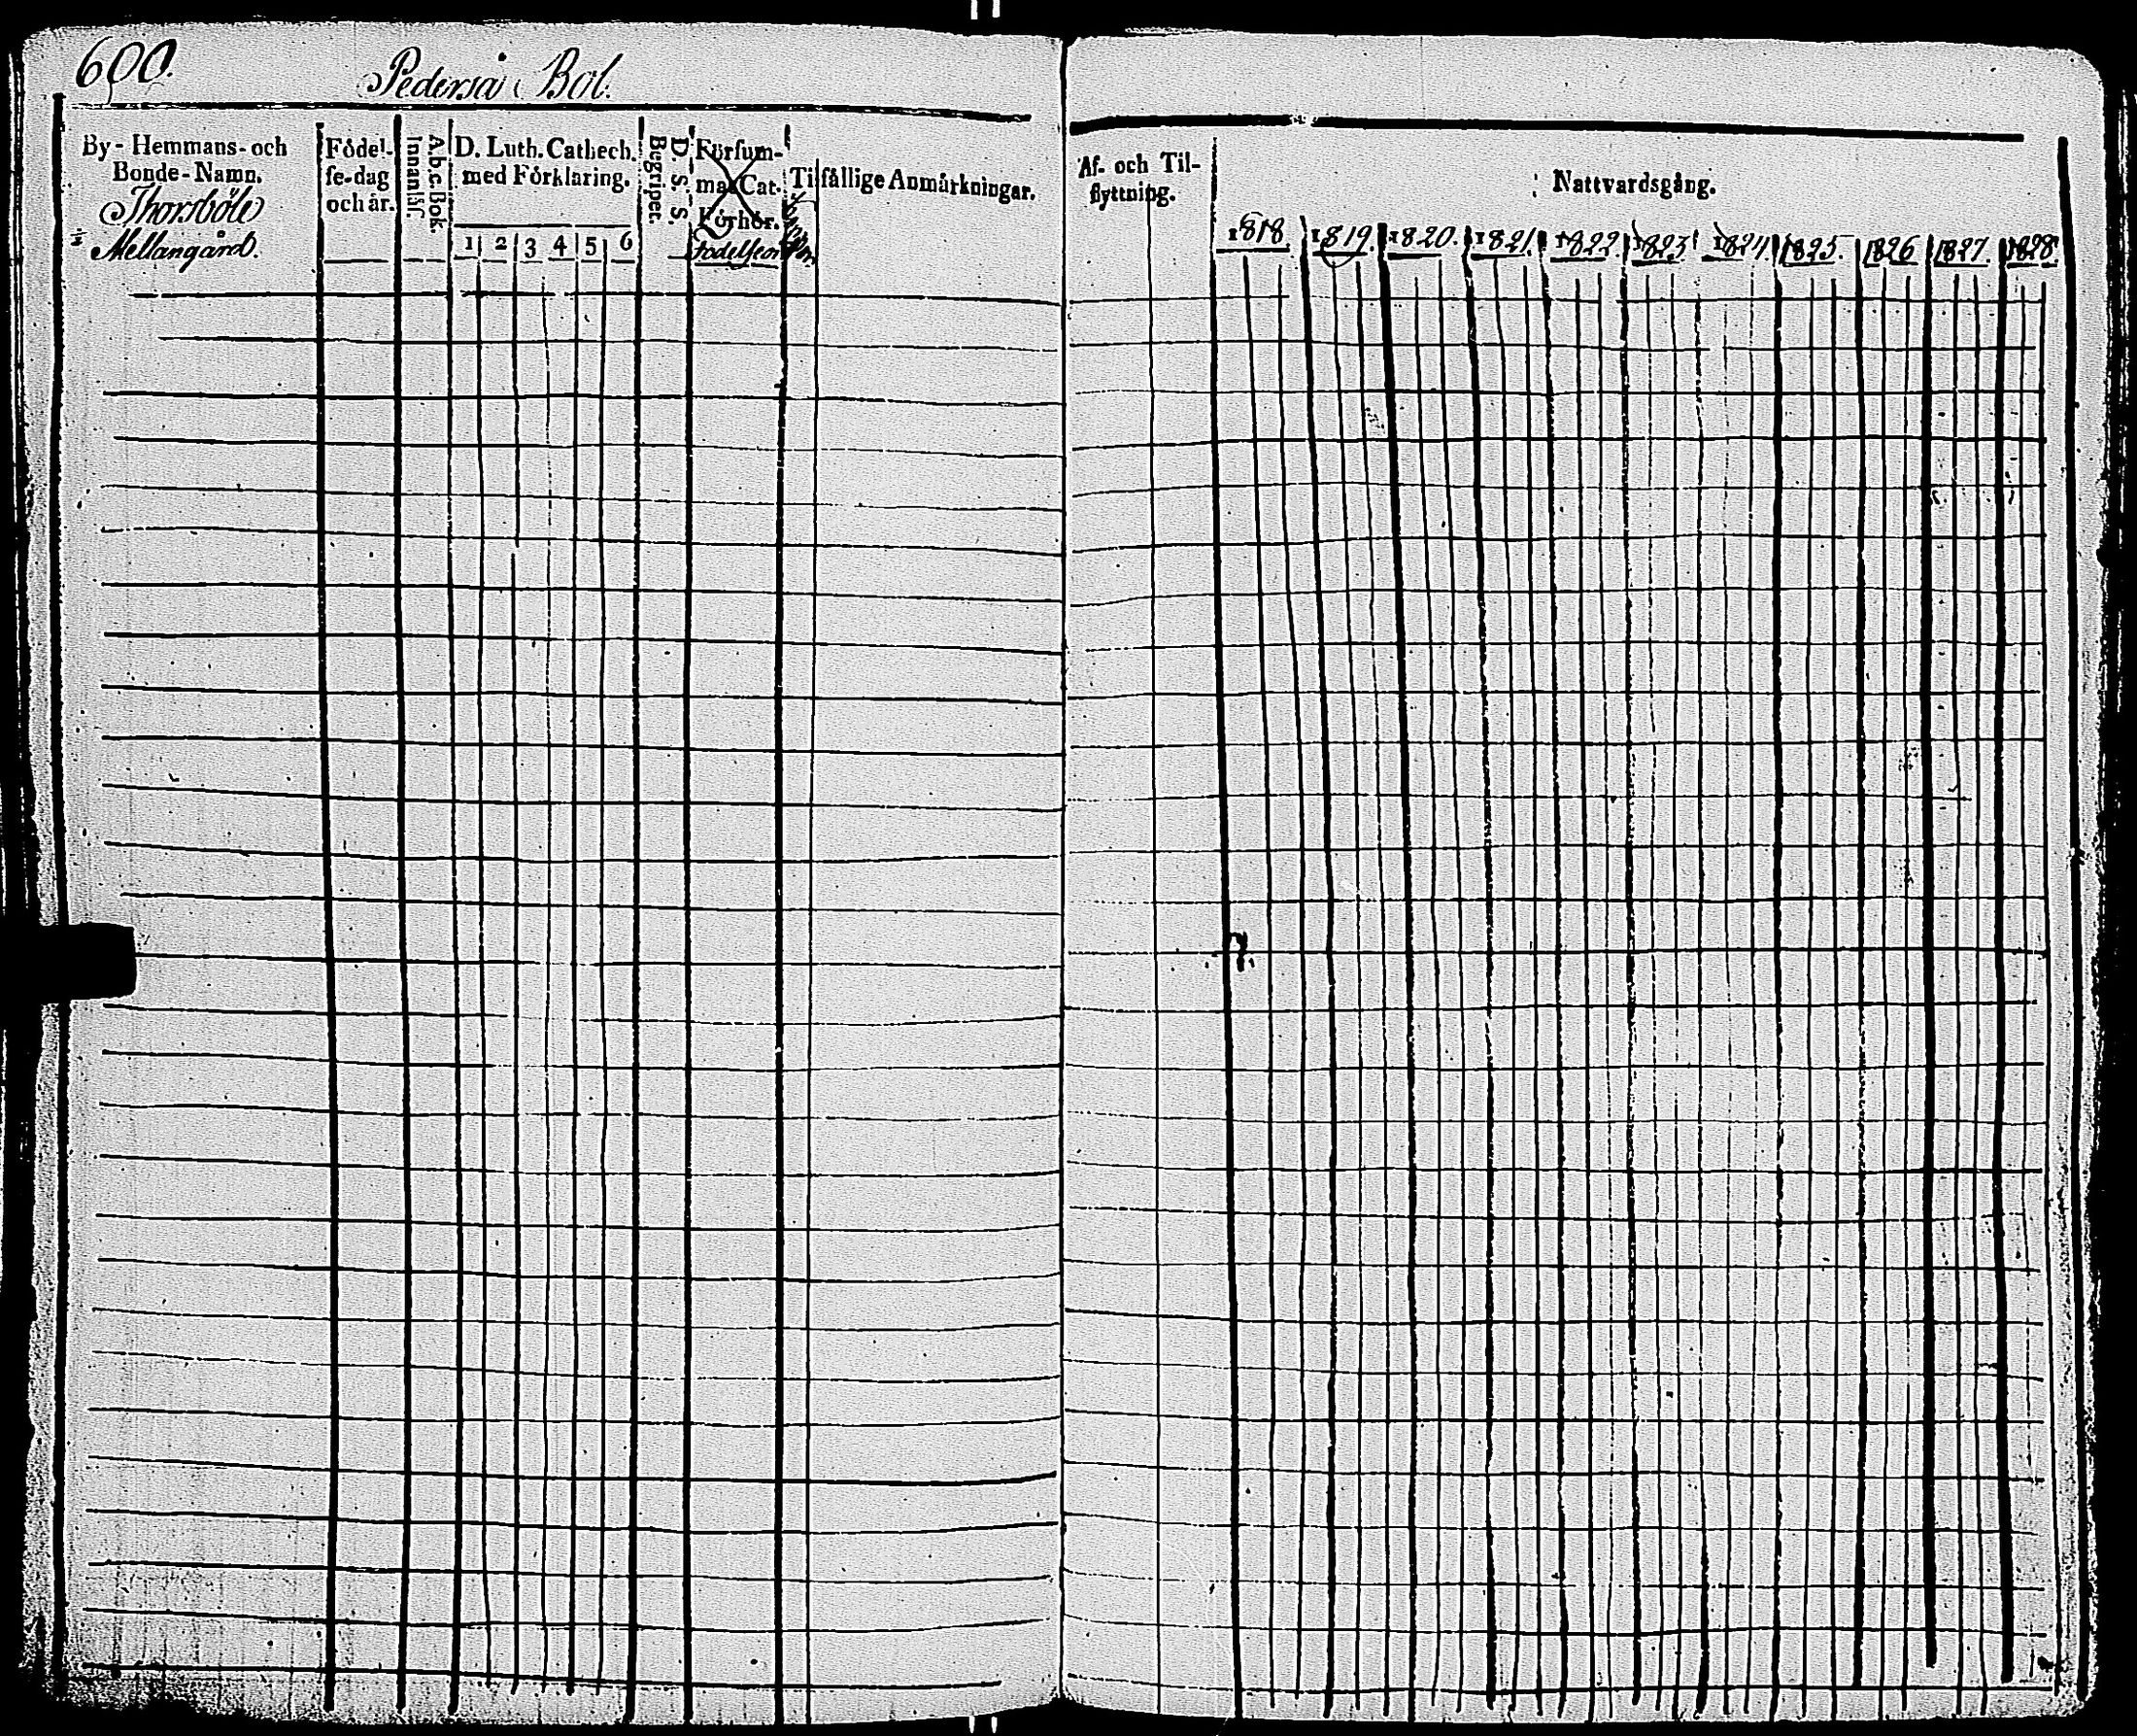 600.
Pederså Bol.
By- Hemmans- och
Bonde-Namn.
Thorsböle
½ Mellangård.
Födel-
se-dag
och år.
A b c Bok
Innanläs.
D. Luth. Cathech.
med Förklaring.
1 2 3 4 5 6
D. S. S.
Begripet.
Försum-
mat Cat.
Förhör.
födelseort
Tilfällige Anmärkningar.
Af- och Til-
flyttning.
Nattvardsgång.
1818. 1819. 1820. 1821. 1822. 1823. 1824. 1825. 1826 1827. 1828.